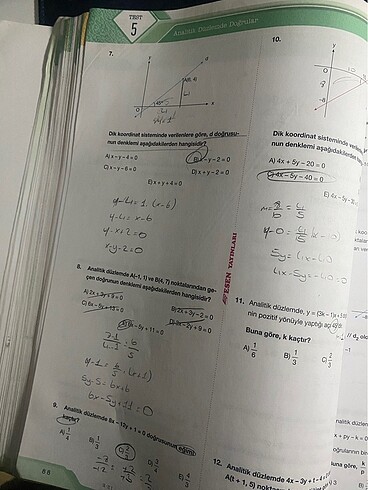 TEST
5
Analitik Düzlemde Doğrular
7.
y
d
A(6, 4)
45°
x
Dik koordinat sisteminde verilenlere göre, d doğrusu-
nun denklemi aşağıdakilerden hangisidir?
A) x – y – 4 = 0
B) x – y – 2 = 0
C) x – y – 6 = 0
D) x + y – 2 = 0
E) x + y + 4 = 0
y-4=1.(x-6)
y-4=x-6
y-x+2=0
x-y-2=0
8. Analitik düzlemde A(-1, 1) ve B(4, 7) noktalarından ge-
çen doğrunun denklemi aşağıdakilerden hangisidir?
A) 2x + 3y + 9 = 0
B) 2x + 3y – 2 = 0
C) 6x – 5y + 13 = 0
D) 3x – 2y + 9 = 0
E) 6x – 5y + 11 = 0
y-1=6/5(x+1)
5y-5=6x+6
6x-5y+11=0
9. Analitik düzlemde 8x – 12y + 1 = 0 doğrusunun eğimi
kaçtır?
A) 1/4
B) 1/3
66
ESEN YAYINLARI
10.
y
-8
Dik koordinat sisteminde
nun denklemi aşağıdakilerden
A) 4x + 5y – 20 = 0
C) 4x – 5y – 40 = 0
E) 4x – 5y
m=8/10=4/5
y-0=4/5(x-10)
5y=4x-40
4x-5y-40=0
11. Analitik düzlemde, y = (3k – 1)x + 5
nin pozitif yönüyle yaptığı açı 45
Buna göre, k kaçtır?
A) 1/6
B) 1/3
C) 2/3
12. Analitik düzlemde 4x – 3y + t – 4
A(t + 1, 5) noktası